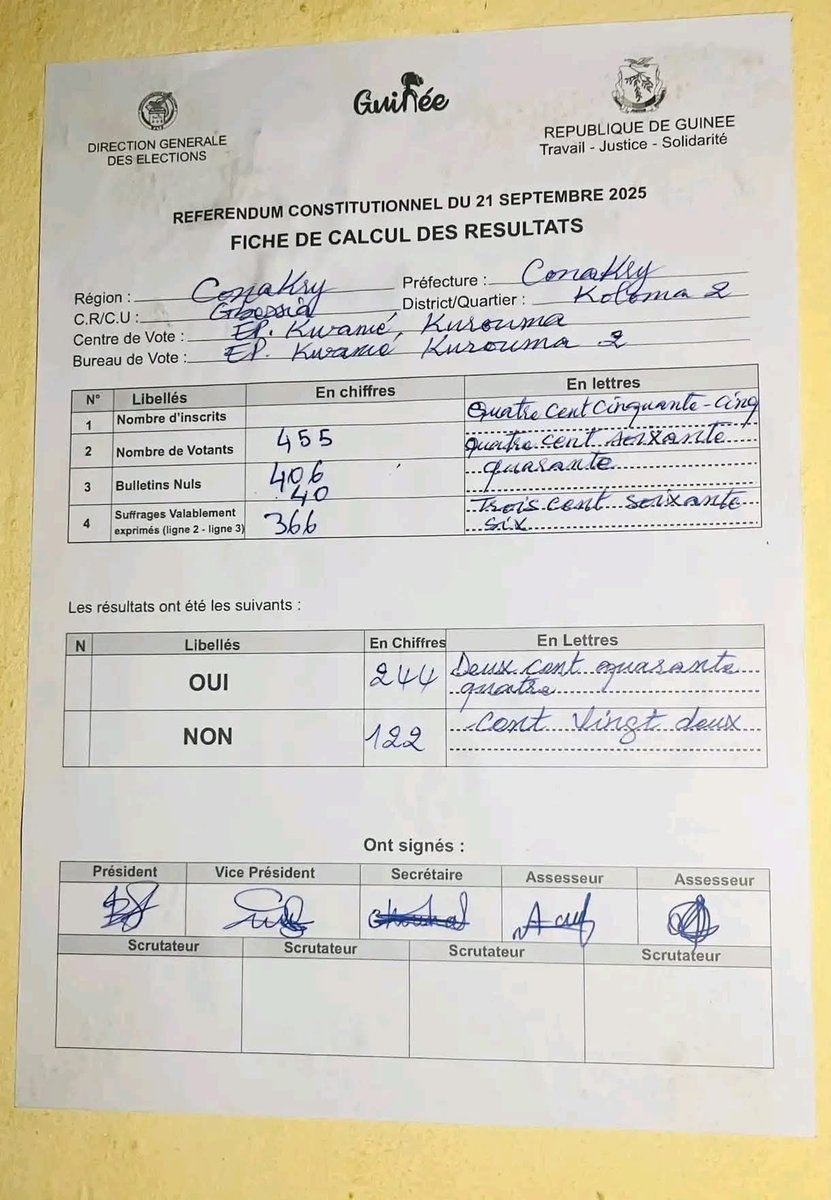 Guinée
DIRECTION GENERALE
DES ELECTIONS
REPUBLIQUE DE GUINEE
Travail - Justice - Solidarité
REFERENDUM CONSTITUTIONNEL DU 21 SEPTEMBRE 2025
FICHE DE CALCUL DES RESULTATS
Région : Conakry Préfecture : Conakry
C.R/C.U : Gbessia District/Quartier : Koloma 2
Centre de Vote : EP. Kwamé, Kurouma
Bureau de Vote : EP. Kwamé Kurouma 2
N° Libellés En chiffres En lettres
1 Nombre d'inscrits quatre cent cinquante-cinq
2 Nombre de Votants 455 quatre cent soixante
3 Bulletins Nuls 406 quarante
40
4 Suffrages Valablement exprimés (ligne 2 - ligne 3) 366 Trois cent soixante
six
Les résultats ont été les suivants :
N Libellés En Chiffres En Lettres
OUI 244 Deux cent quarante
quatre
NON 122 cent vingt deux
Ont signés :
Président Vice Président Secrétaire Assesseur Assesseur
Scrutateur Scrutateur Scrutateur Scrutateur